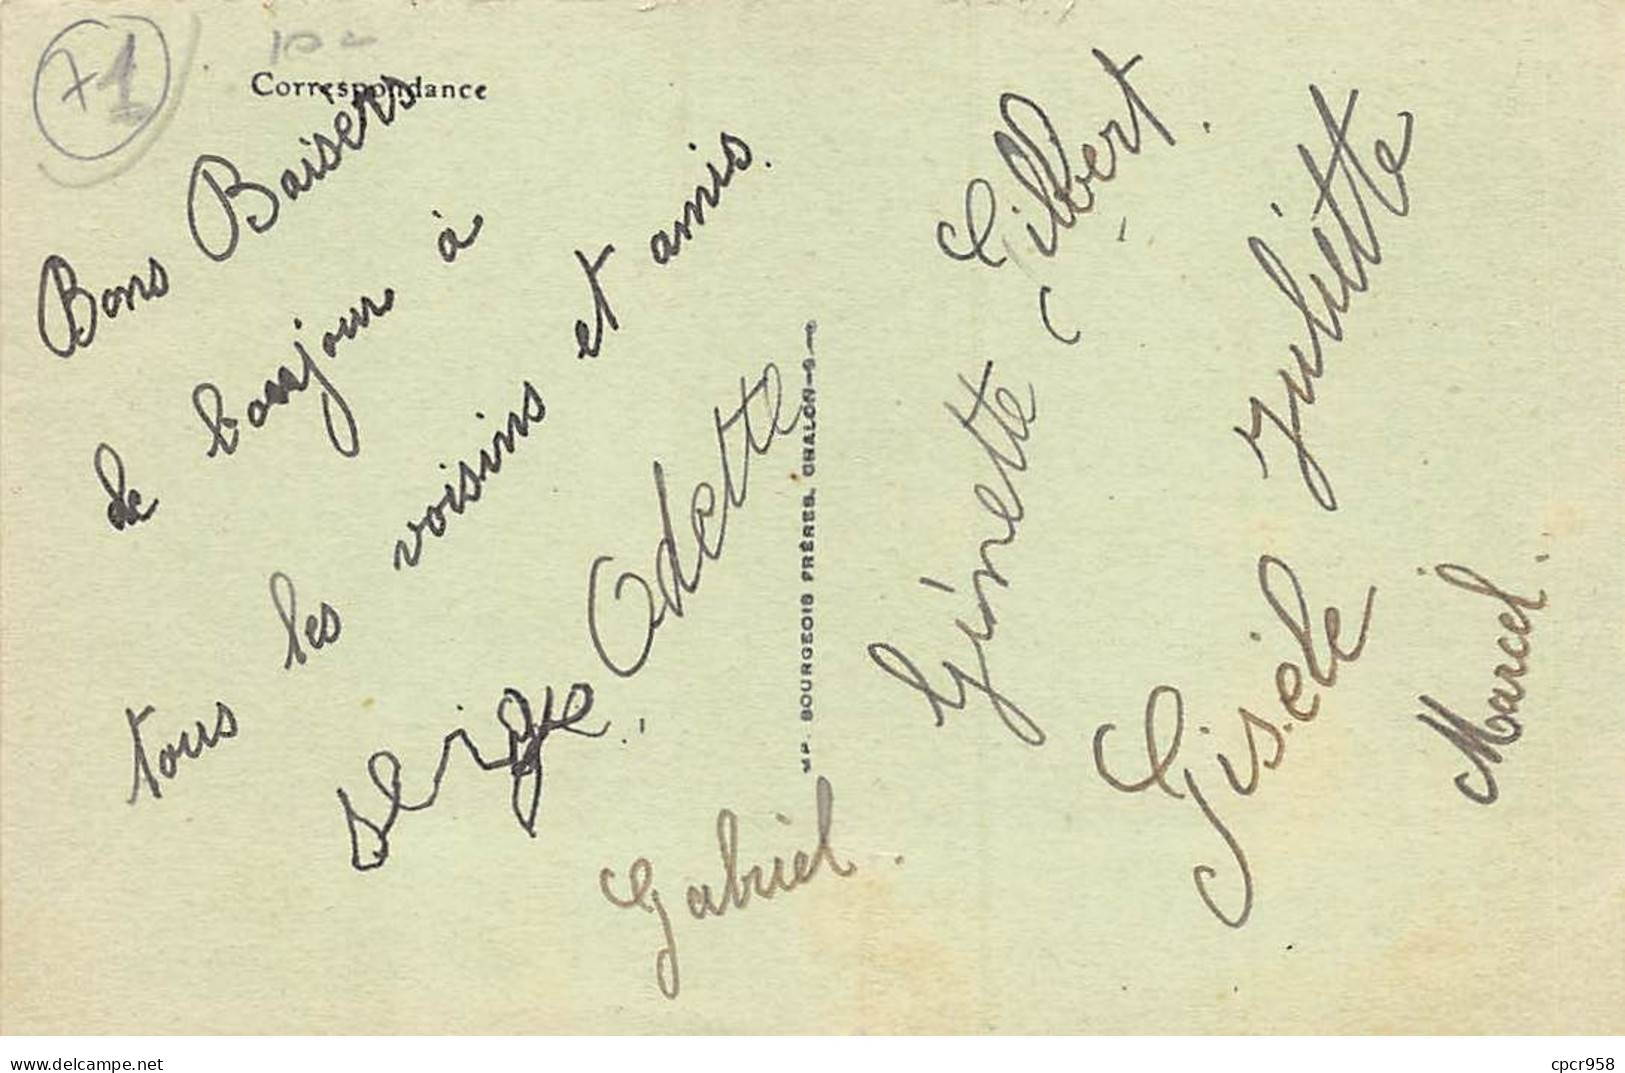 +1
Correspondance
Bons Baisers
de bonjour à
tous les voisins et amis.
Serge.
Odette
Gabriel.
IMP. BOURGEOIS FRÈRES, CHALON-S-S
Gilbert.
Ginette
Juliette
Gisèle
Marcel.
www.delcampe.net
cpcr958